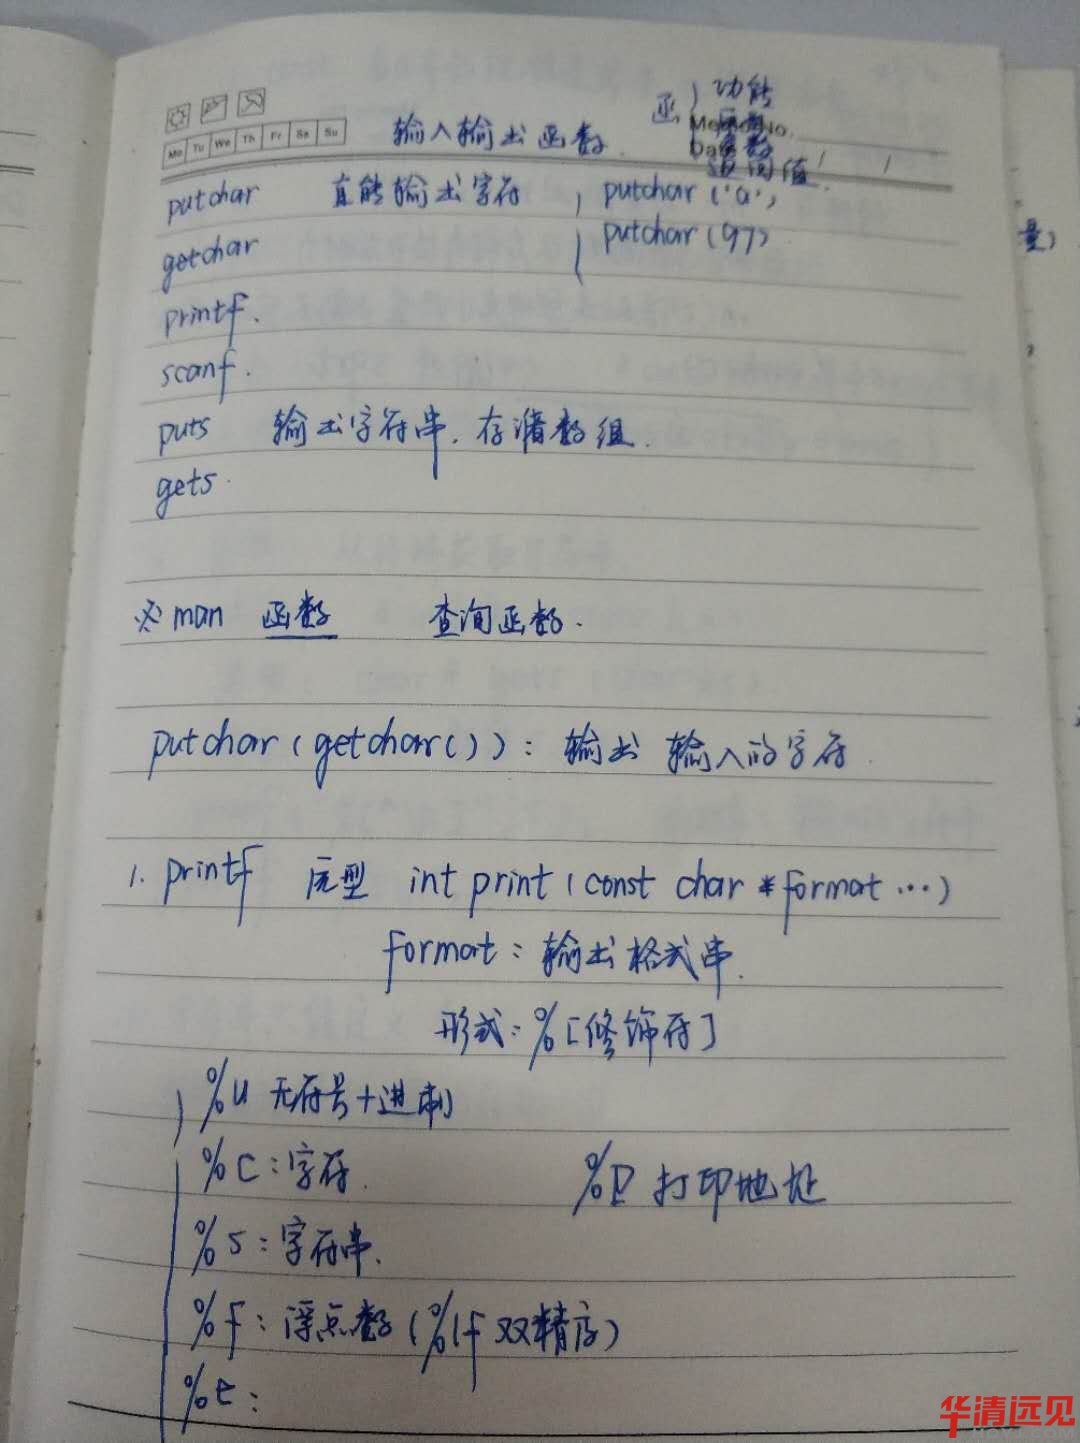 函 功能
Mo Tu We Th Fr Sa Su
输入输出函数. Memo No.
参数
Date / /
返回值.
putchar 直能输出字符 putchar('a',
getchar putchar(97)
printf.
scanf.
puts 输出字符串.存储数组.
gets.
※ man 函数 查询函数.
putchar(getchar()): 输出 输入的字符.
1. printf 原型 int print(const char *format …)
format: 输出格式串.
形式: %[修饰符]
%u 无符号十进制
%c:字符. %p 打印地址
%s:字符串.
%f:浮点数(%lf双精度)
%e:
华清远见